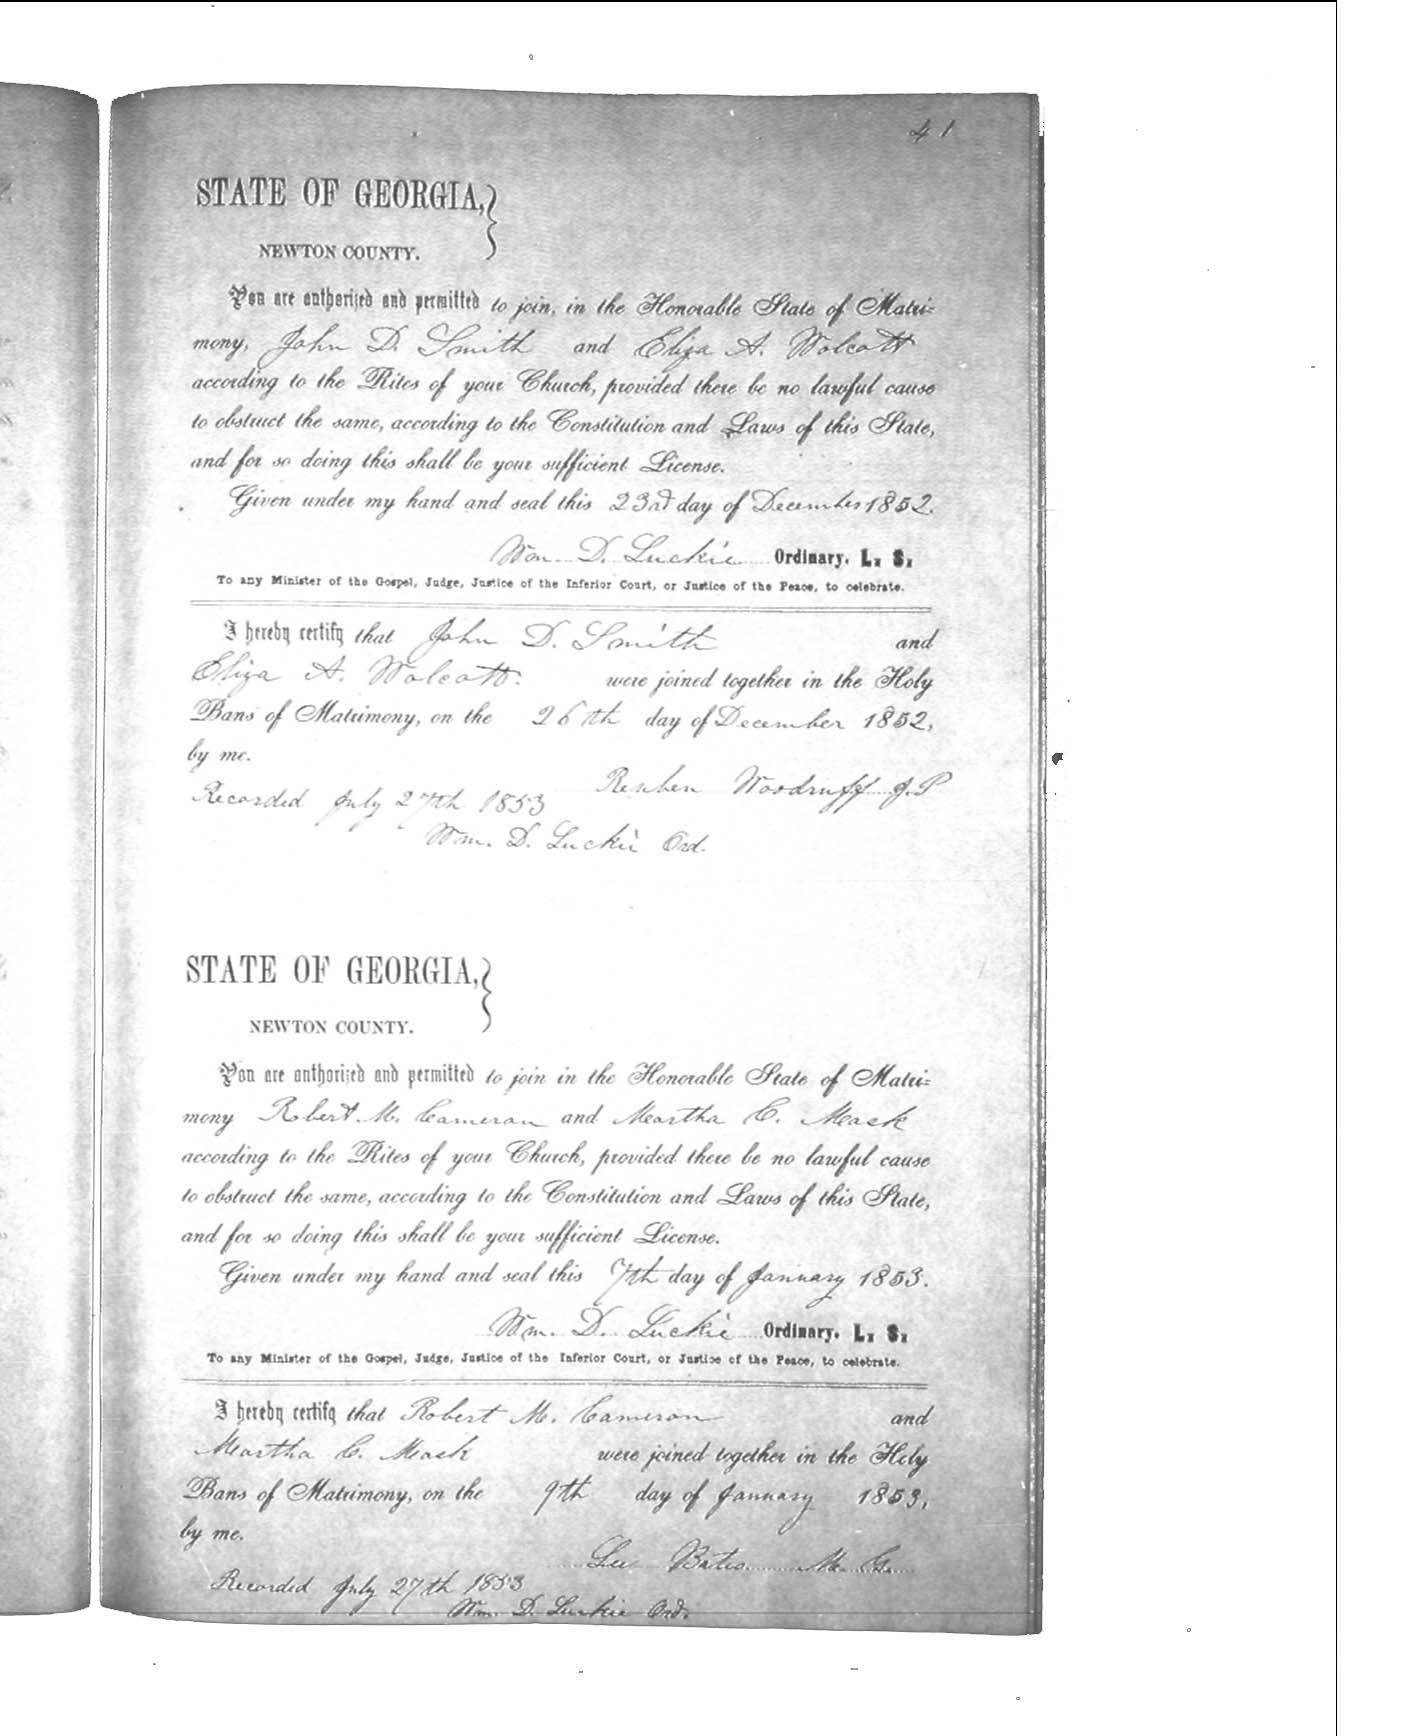 41
STATE OF GEORGIA,
NEWTON COUNTY.
You are authorized and permitted to join, in the Honorable State of Matri-
mony, John D. Smith and Eliza A. Wolcott
according to the Rites of your Church, provided there be no lawful cause
to obstruct the same, according to the Constitution and Laws of this State,
and for so doing this shall be your sufficient License.
Given under my hand and seal this 23rd day of December 1852.
Wm. D. Luckie Ordinary. L. S.
To any Minister of the Gospel, Judge, Justice of the Inferior Court, or Justice of the Peace, to celebrate.
I hereby certify that John D. Smith and
Eliza A. Wolcott. were joined together in the Holy
Bans of Matrimony, on the 26th day of December 1852,
by me.
Reuben Woodruff J.P
Recorded July 27th 1853
Wm. D. Luckie Ord.
STATE OF GEORGIA,
NEWTON COUNTY.
You are authorized and permitted to join in the Honorable State of Matri-
mony Robert M. Cameron and Martha C. Mask
according to the Rites of your Church, provided there be no lawful cause
to obstruct the same, according to the Constitution and Laws of this State,
and for so doing this shall be your sufficient License.
Given under my hand and seal this 7th day of January 1853.
Wm. D. Luckie Ordinary. L. S.
To any Minister of the Gospel, Judge, Justice of the Inferior Court, or Justice of the Peace, to celebrate.
I hereby certify that Robert M. Cameron and
Martha C. Mask were joined together in the Holy
Bans of Matrimony, on the 9th day of January 1853,
by me.
M. G.
Recorded July 27th 1853
Wm. D. Luckie Ord.